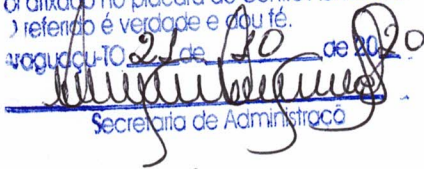 foi afixado no placard do
O referido é verdade e dou fé.
Araguaçu-TO 21 de 10 de 2020
Secretaria de Administraçã